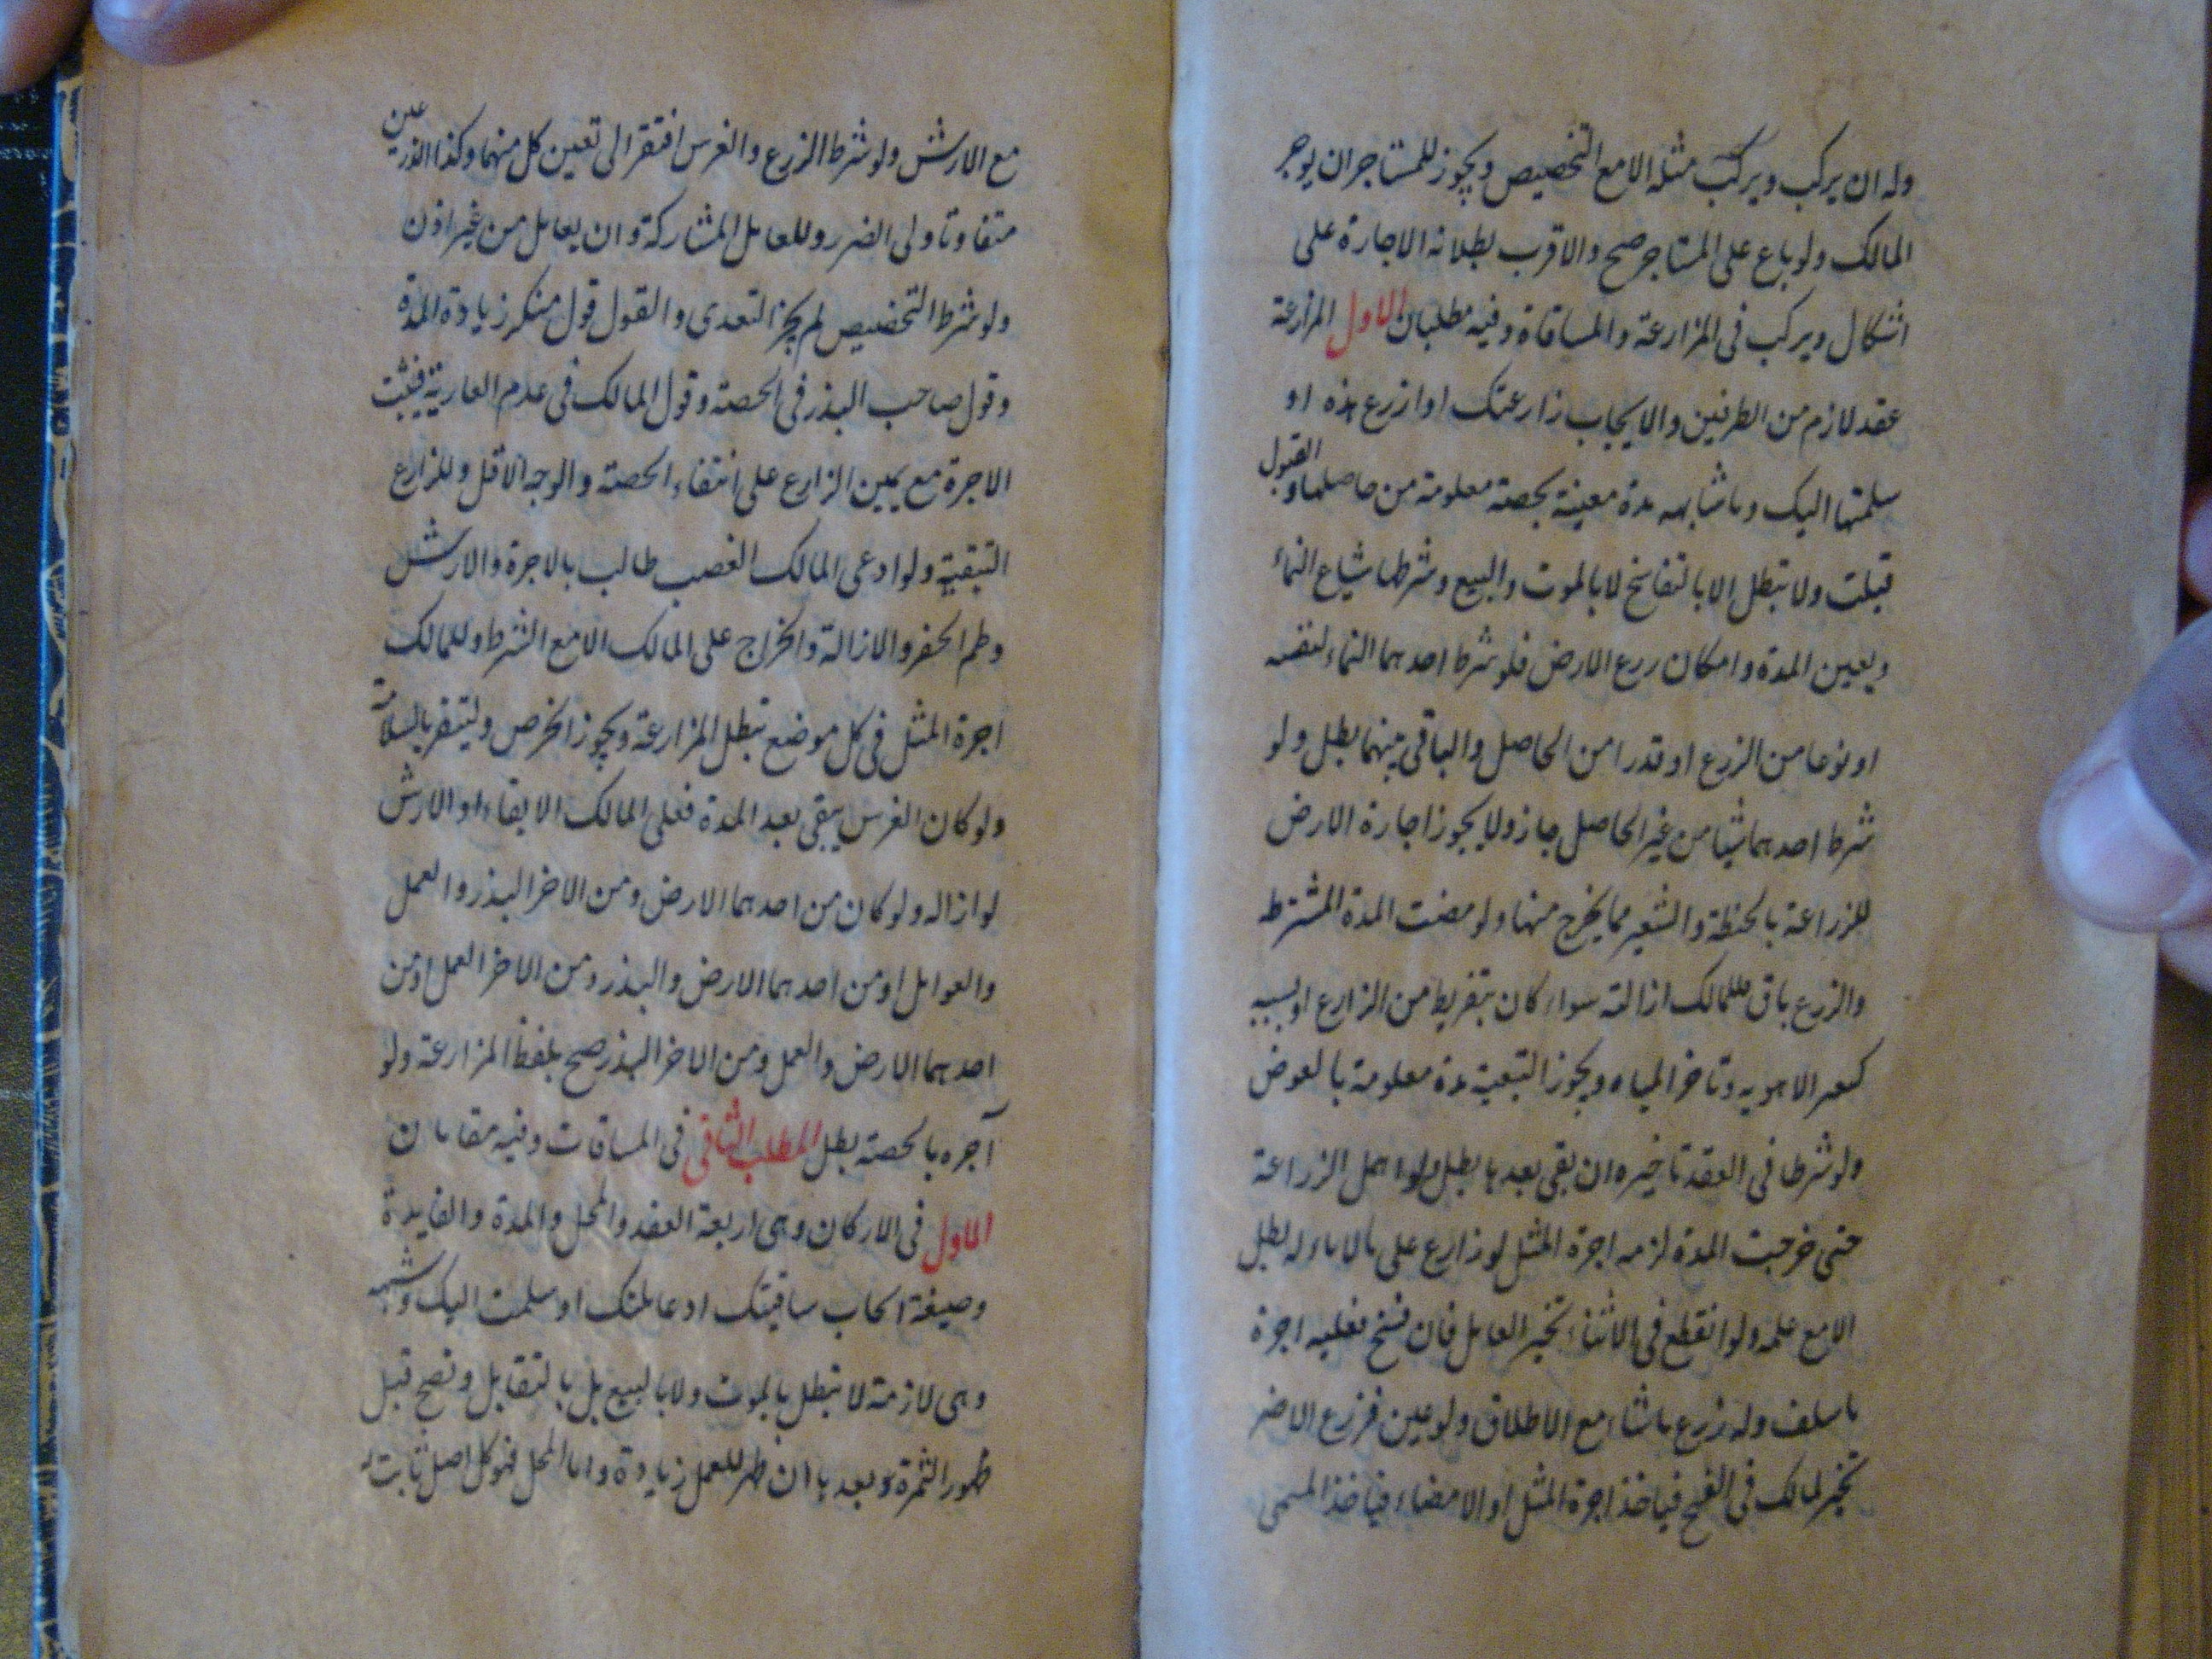 وله ان يركب ويركب مثله الا مع التخصيص ويجوز للمستاجر ان يوجر
المالك ولو باع على المستاجر صح والاقرب بطلانه الاجارة على
اشكال ويركب فى المزارعة والمساقاة وفيه مطلبان الاول المزارعة
عقد لازم من الطرفين والايجاب زارعتك او ازرع هذه او
سلمتها اليك وما شابهه مدة معينة بحصة معلومة من حاصلها والقبول
قبلت ولا تبطل الا بالتفاسخ لا بالموت والبيع وشرطها شياع النماء
وتعيين المدة وامكان زرع الارض فلو شرط احدهما النماء لنفسه
او نوعا من الزرع او قدرا من الحاصل والباقى بينهما بطل ولو
شرط احدهما شيئا من غير الحاصل جاز ولا يجوز اجارة الارض
للزراعة بالحنطة والشعير مما يخرج منها ولو مضت المدة المشترطه
والزرع باق فللمالك ازالته سواء كان بتفريط من الزارع او بسببه
كتغير الاهويه وتاخر المياه ويجوز التبقية مدة معلومة بالعوض
ولو شرطا فى العقد تاخيره ان بقى بعدها بطل ولو اهمل الزراعة
حتى خرجت المدة لزمه اجرة المثل لو زارع على ما لا ماء له بطل
الا مع علمه ولو انقطع فى الاثناء تخير العامل فان فسخ فعليه اجرة
ما سلف وله زرع ما شاء مع الاطلاق ولو عين فزرع الاضر
تخير المالك فى الفسخ فياخذ اجرة المثل او الامضاء فياخذ المسمى
مع الارش ولو شرط الزرع والغرس افتقر الى تعيين كل منهما وكذا الزرعين
متفاوتا ولى الضرر وللعامل المشاركة وان يعامل من غير اذن
ولو شرط التخصيص لم يجز التعدى والقول قول منكر زيادة المدة
وقول صاحب البذر فى الحصة وقول المالك فى عدم العارية فيثبت
الاجرة مع يمين الزارع على انتفاء الحصة والوجه الاقل وللزارع
التبقية ولو ادعى المالك الغصب طالب بالاجرة والارش
وطم الحفر والازالة والخراج على المالك الا مع الشرط وللمالك
اجرة المثل فى كل موضع تبطل المزارعة ويجوز الخرص وليتقر بالسلامة
ولو كان الغرس يبقى بعد المدة فعلى المالك الابقاء او الارش
لو ازاله ولو كان من احدهما الارض ومن الاخر البذر والعمل
والعوامل او من احدهما الارض والبذر ومن الاخر العمل او من
احدهما الارض والعمل ومن الاخر البذر صح بلفظ المزارعة ولو
آجره بالحصة بطل المطلب الثانى فى المساقات وفيه مقامان
الاول فى الاركان وهى اربعة العقد والمحل والمدة والفايدة
وصيغة ايجاب ساقيتك او عاملتك او سلمت اليك وشبهه
وهى لازمة لا تبطل بالموت ولا بالبيع بل بالتقابل وتصح قبل
ظهور الثمرة وبعدها ان ظهر للعمل زيادة واما المحل فهو كل اصل ثابت له